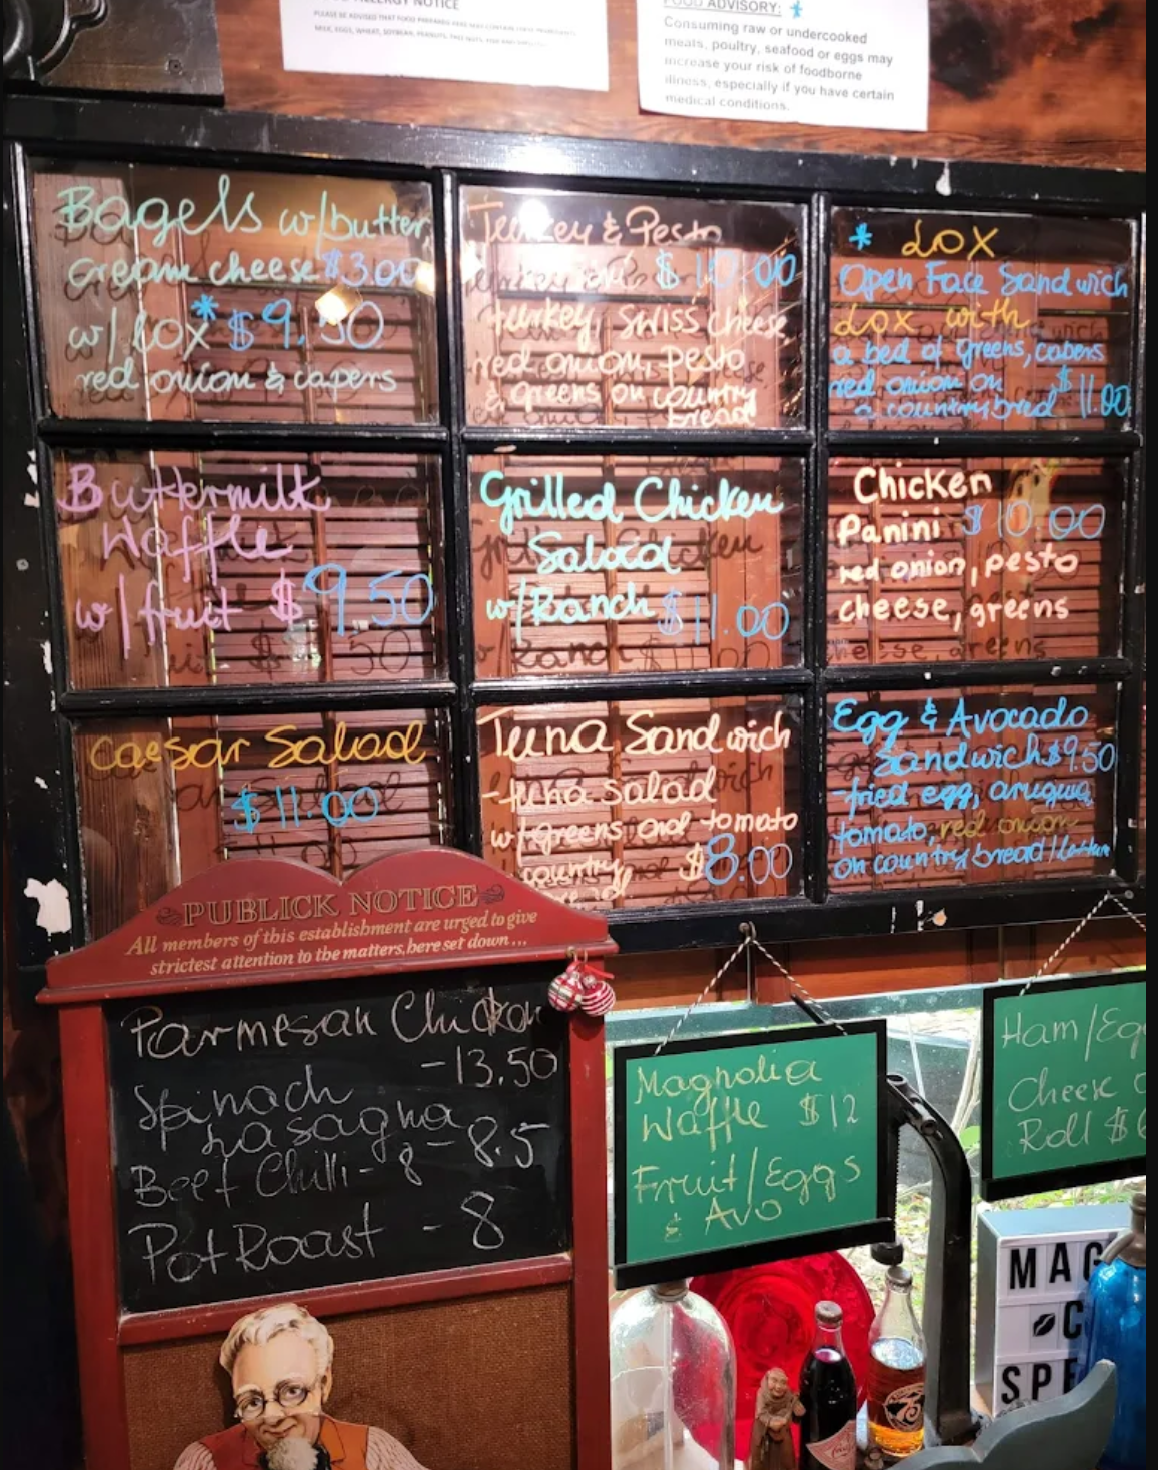 ALLERGY NOTICE
PLEASE BE ADVISED THAT FOOD PREPARED HERE MAY CONTAIN THESE INGREDIENTS:
MILK, EGGS, WHEAT, SOYBEAN, PEANUTS, TREE NUTS, FISH AND
FOOD ADVISORY: *
Consuming raw or undercooked
meals, poultry, seafood or eggs may
increase your risk of foodborne
illness, especially if you have certain
medical conditions.
Bagels w/butter
cream cheese $3.00
w/lox* $9.50
red onion & capers
Turkey & Pesto
$10.00
turkey, swiss cheese
red onion, pesto
& greens on country
bread
* LOX
Open Face Sandwich
Lox with
a bed of greens, capers
red onion on
a country bred $11.00
Buttermilk
Waffle
w/fruit $9.50
Grilled Chicken
Salad
w/Ranch $11.00
Chicken
Panini $10.00
red onion, pesto
cheese, greens
Caesar Salad
$11.00
Tuna Sandwich
-tuna salad
w/greens and tomato
country $8.00
Egg & Avocado
Sandwich $9.50
-fried egg, arugula,
tomato, red onion
on country bread/
PUBLICK NOTICE
All members of this establishment are urged to give
strictest attention to the matters, here set down...
Parmesan Chicken
-13.50
Spinach
Lasagna - 8.5
Beef Chilli - 8
Pot Roast - 8
Magnolia
Waffle $12
Fruit/Eggs
& Avo
Ham/Eg
Cheese
Roll $6
MAG
C
SPE